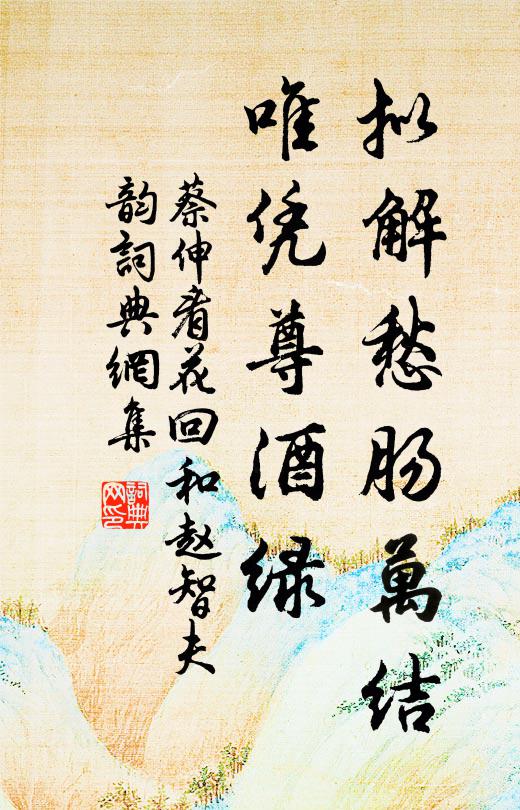 拟解愁肠萬结
唯凭尊酒绿
蔡伸看花回和赵智夫
韵詞典網集
詞典
网印